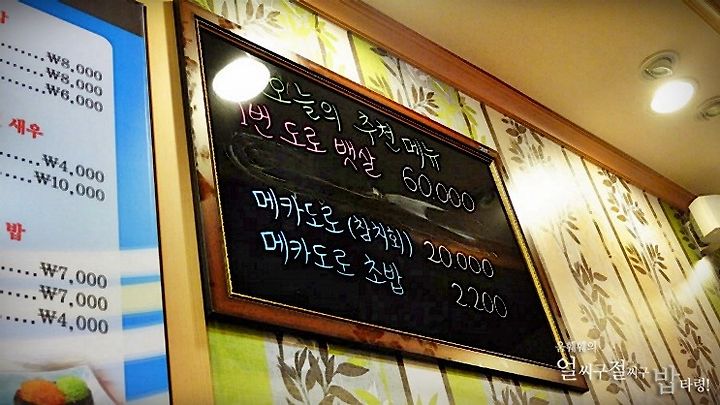 ₩8,000
₩8,000
₩6,000
새우
₩4,000
₩10,000
밥
₩7,000
₩7,000
₩4,000
오늘의 추천 메뉴
1번 도로 뱃살 60.000
메카도로 (참치회) 20.000
메카도로 초밥 2200
얼씨구절씨구 밥타령!